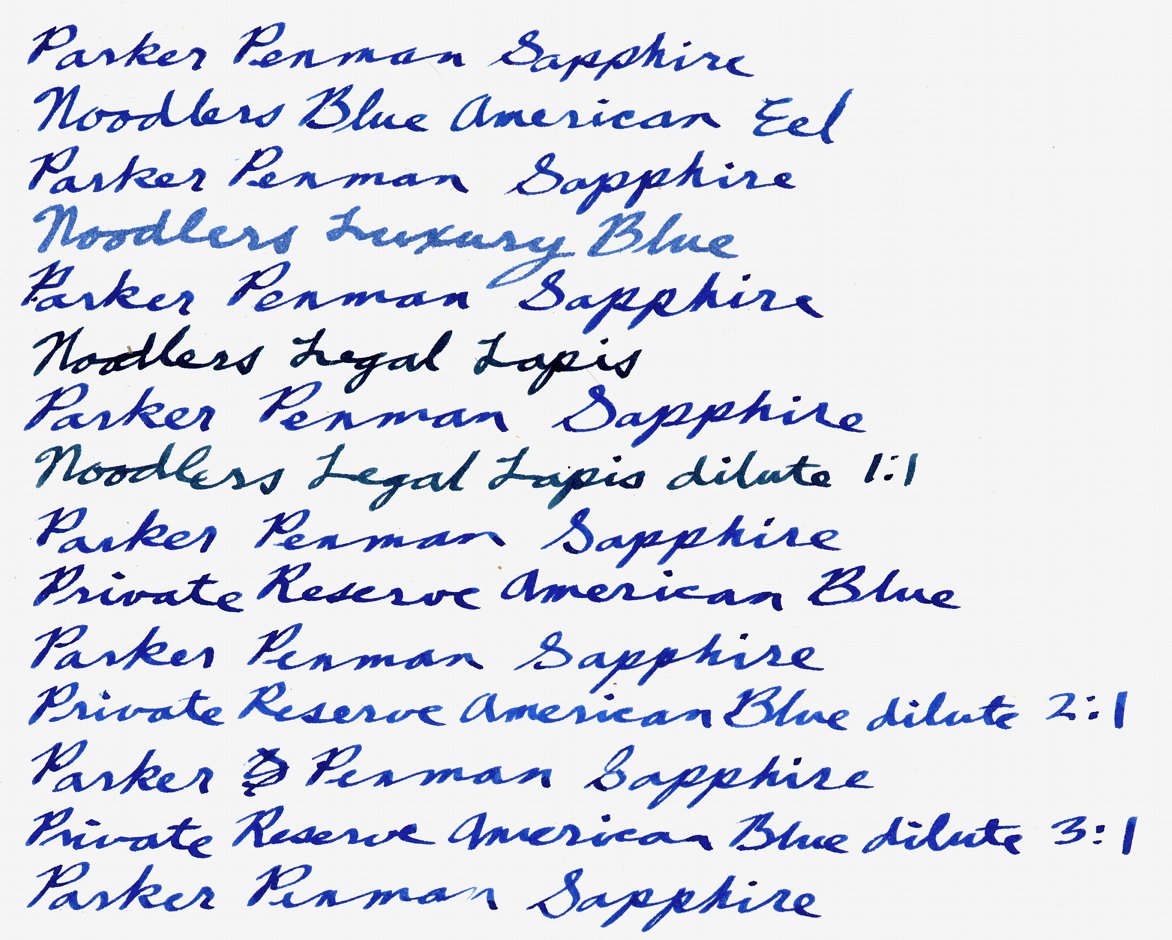 Parker Penman Sapphire
Noodlers Blue American Eel
Parker Penman Sapphire
Noodlers Luxury Blue
Parker Penman Sapphire
Noodlers Legal Lapis
Parker Penman Sapphire
Noodlers Legal Lapis dilute 1:1
Parker Penman Sapphire
Private Reserve American Blue
Parker Penman Sapphire
Private Reserve American Blue dilute 2:1
Parker Penman Sapphire
Private Reserve American Blue dilute 3:1
Parker Penman Sapphire